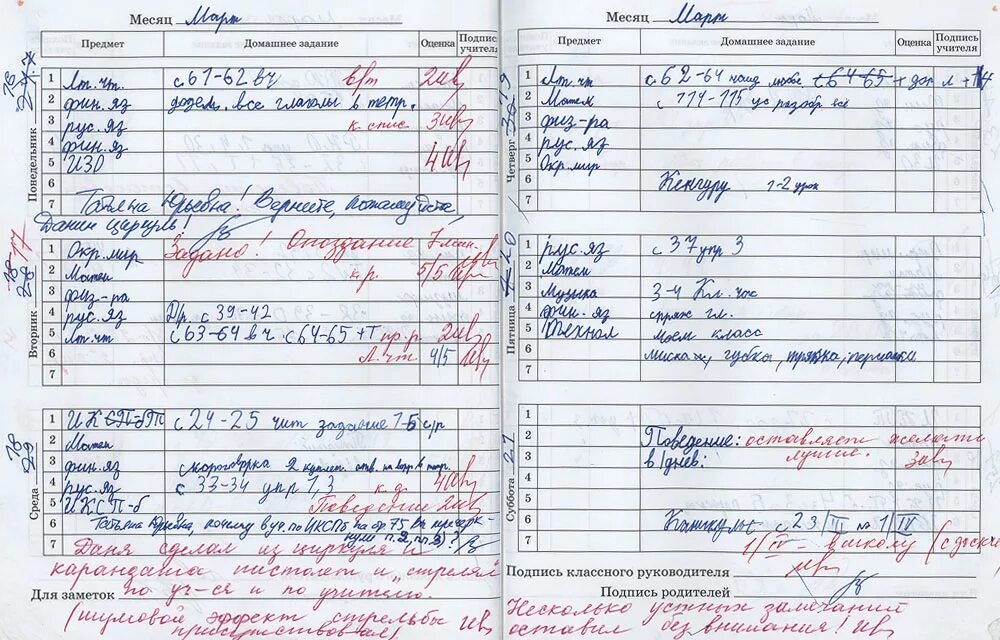 Месяц Март
Предмет Домашнее задание Оценка Подпись учителя
Понедельник 16
1 Лт. чт. с 61-62 вч 2 ив
2 фин. яз додел. все глаголы в тетр.
3 рус. яз к. спис. 3 ив
4 фин. яз
5 ИЗО 4 ив
6
7 Татьяна Юрьевна! Верните, пожалуйста,
Данин циркуль!
Вторник 17
1 Окр. мир Задано! Опоздание 7 мин.
2 Матем к.р. 5/5
3 физ-ра
4 рус. яз Др. с 39-42
5 Лт. чт с 63-64 вч. с 64-65 +Т пр. р. 2 ив
6 Л. чт. 4/5 ив
7
Среда 18
1 с 24-25 чит задание 1-5 с/р
2 Матем
3 фин. яз скороговорка 2 куплет. отв. на вопр. в тетр.
4 рус. яз с 33-34 упр 1, 3 к. д. 4 ив
5 ИКСП-б Поведение 2 ив
6 Татьяна Юрьевна, почему в ур. по ИКСПб на стр 75 Вы
7 п. 2, пп. 3)?
Даня сделал из циркуля и
карандаша пистолет и "стрелял"
Для заметок по уч-ся и по учителю.
(шумовой эффект стрельбы
присутствовал) ив
Месяц Март
Предмет Домашнее задание Оценка Подпись учителя
Четверг 19
1 Лт. чт с 62-64 наиз. с 64-65 + дор
2 Матем с 114-115 ус разобр все
3 физ-ра
4 рус. яз
5 Окр. мир
6 Кенгуру 1-2 урок
7
Пятница 20
1 рус. яз с 37 упр 3
2 Матем
3 Музыка 3-4 Кл. час
4 фин. яз спряж гл.
5 Технол моем класс
6 миска, губка, тряпка, перчатки
7
Суббота 21
1
2 Поведение: оставляет желать
3 в/днев: лучшие. 3 ив
4
5
6 Каникулы с 23/III по 1/IV
7 1/IV - в школу
Подпись классного руководителя
Подпись родителей
Несколько устных замечаний
оставил без внимания! ив